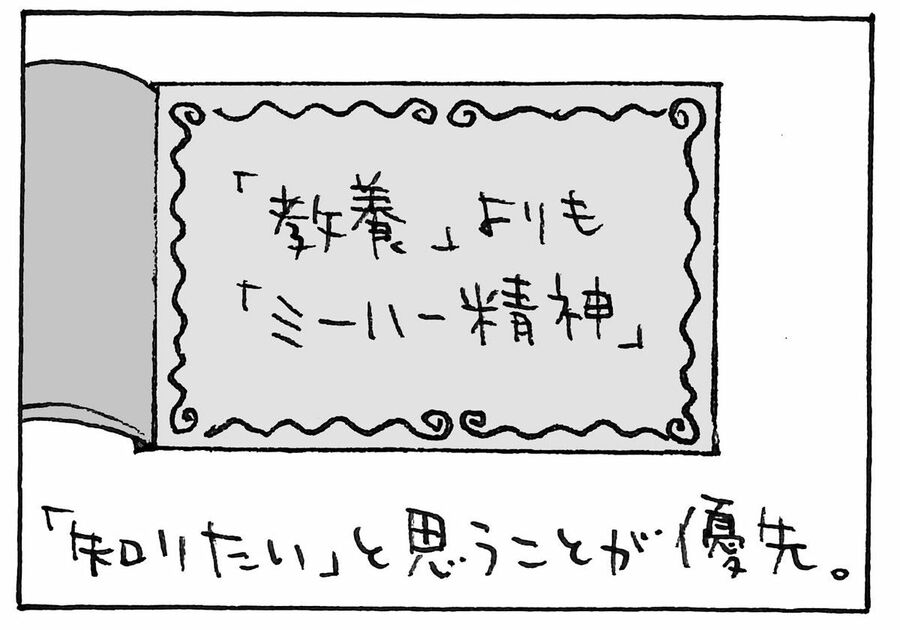 「教養」よりも
「ミーハー精神」
「知りたい」と思うことが優先。